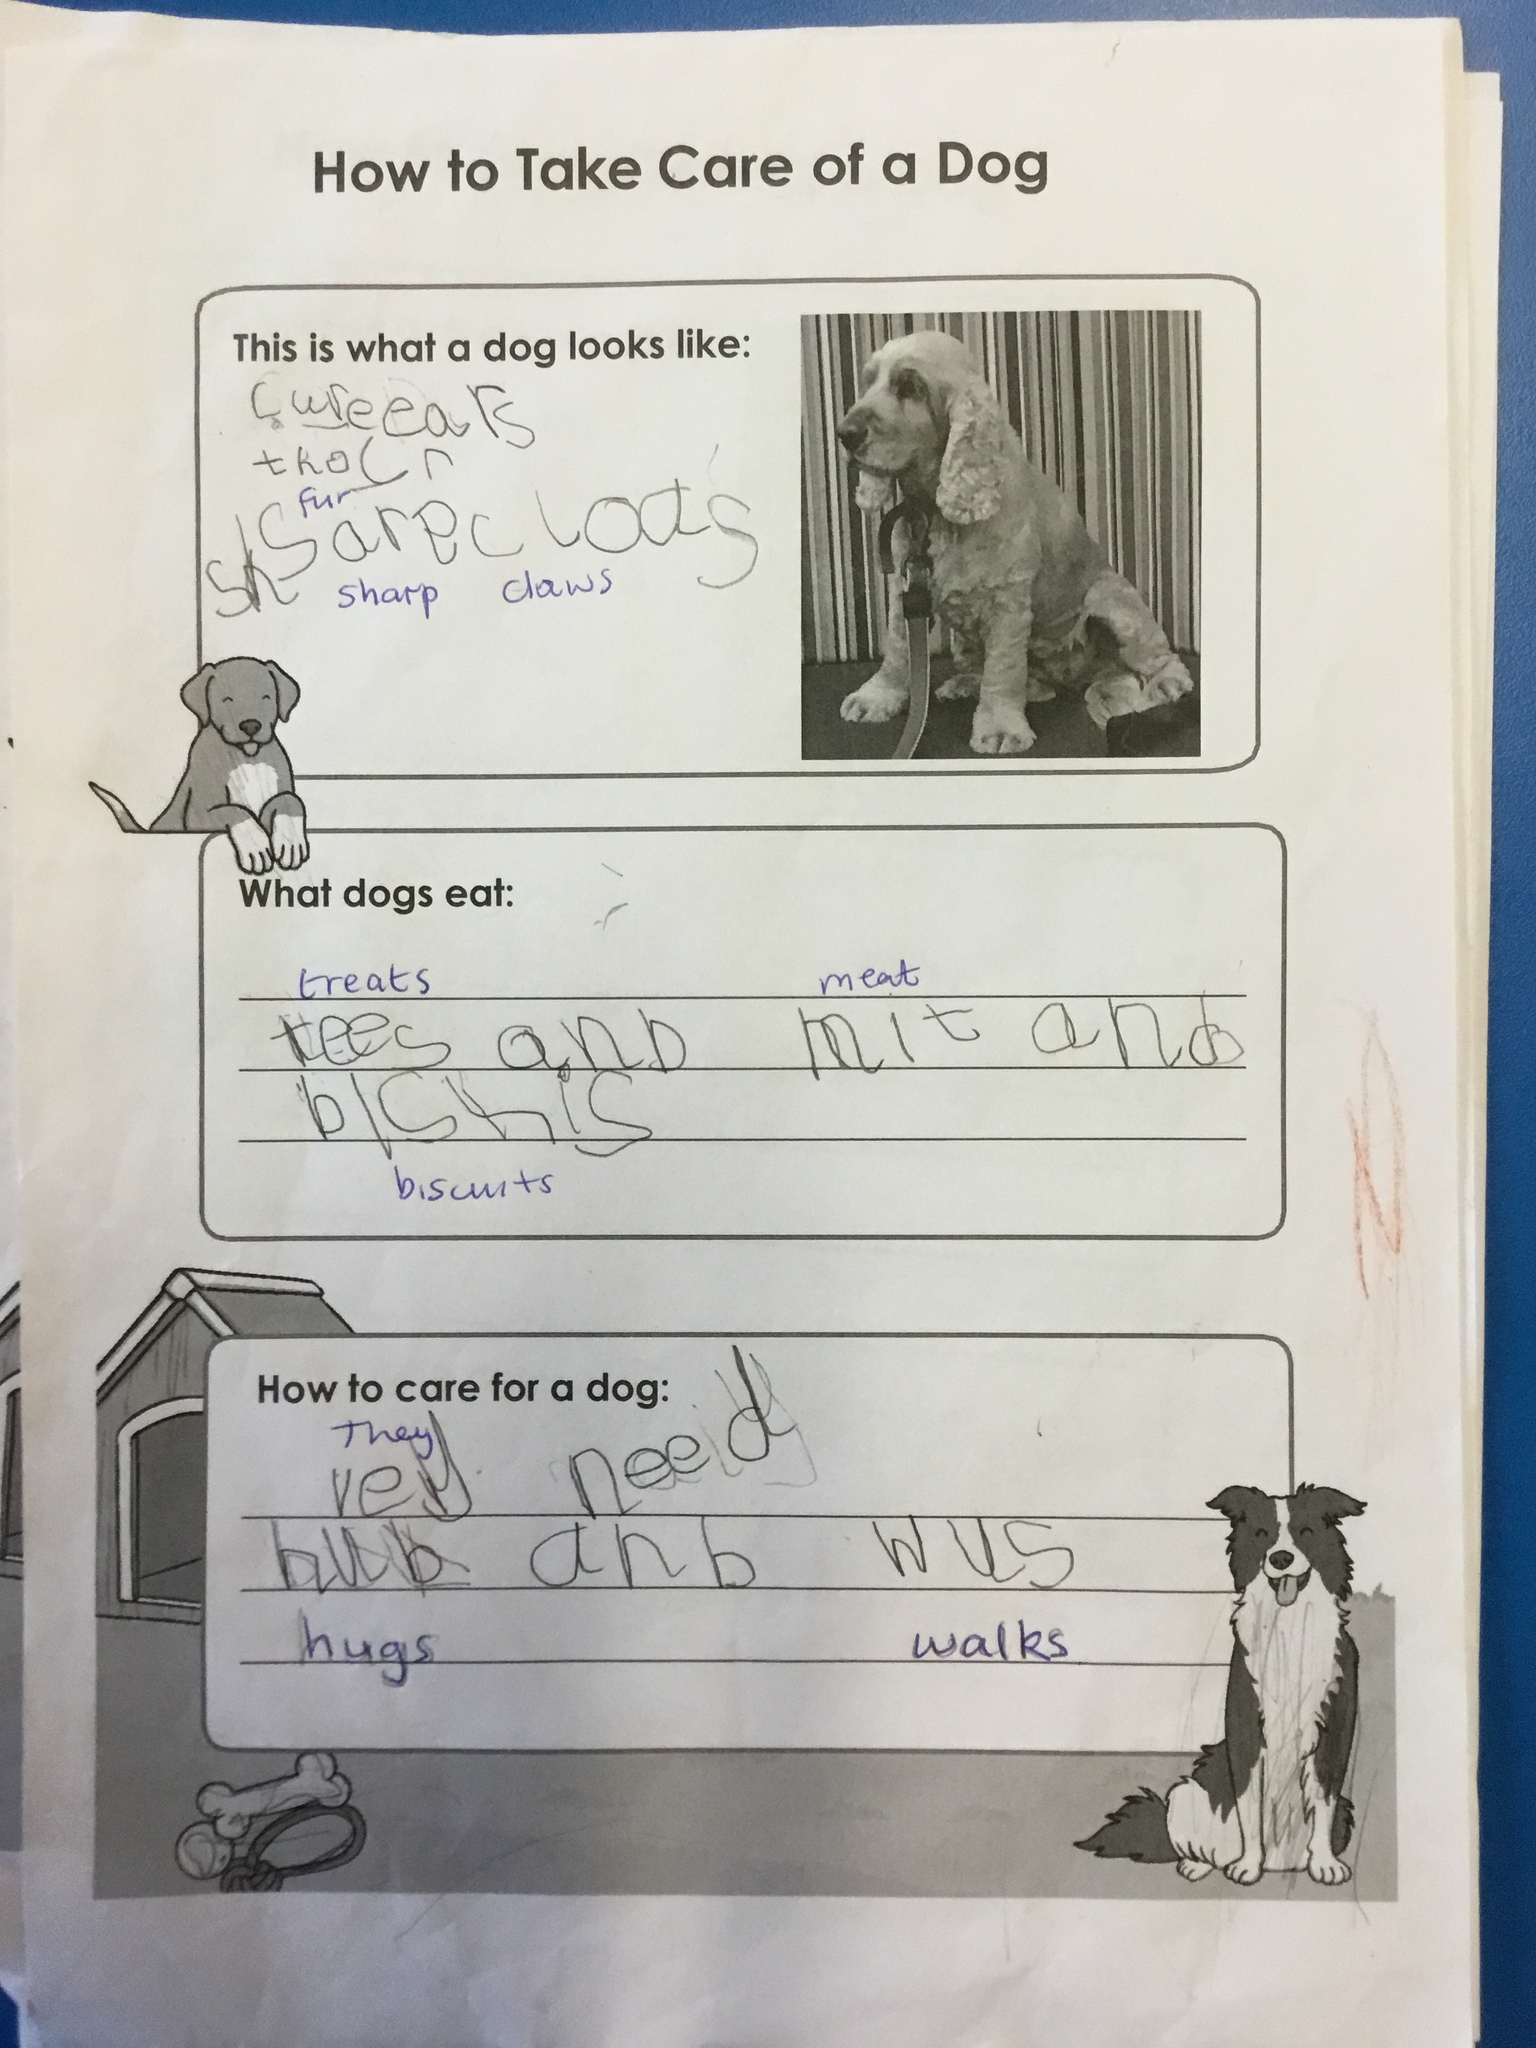 How to Take Care of a Dog
This is what a dog looks like:
ears
fur
Sh
sharp claws
What dogs eat:
treats meat
tees and mit and
bisnis
biscuits
How to care for a dog:
They
vey need
hub anb wus
hugs walks